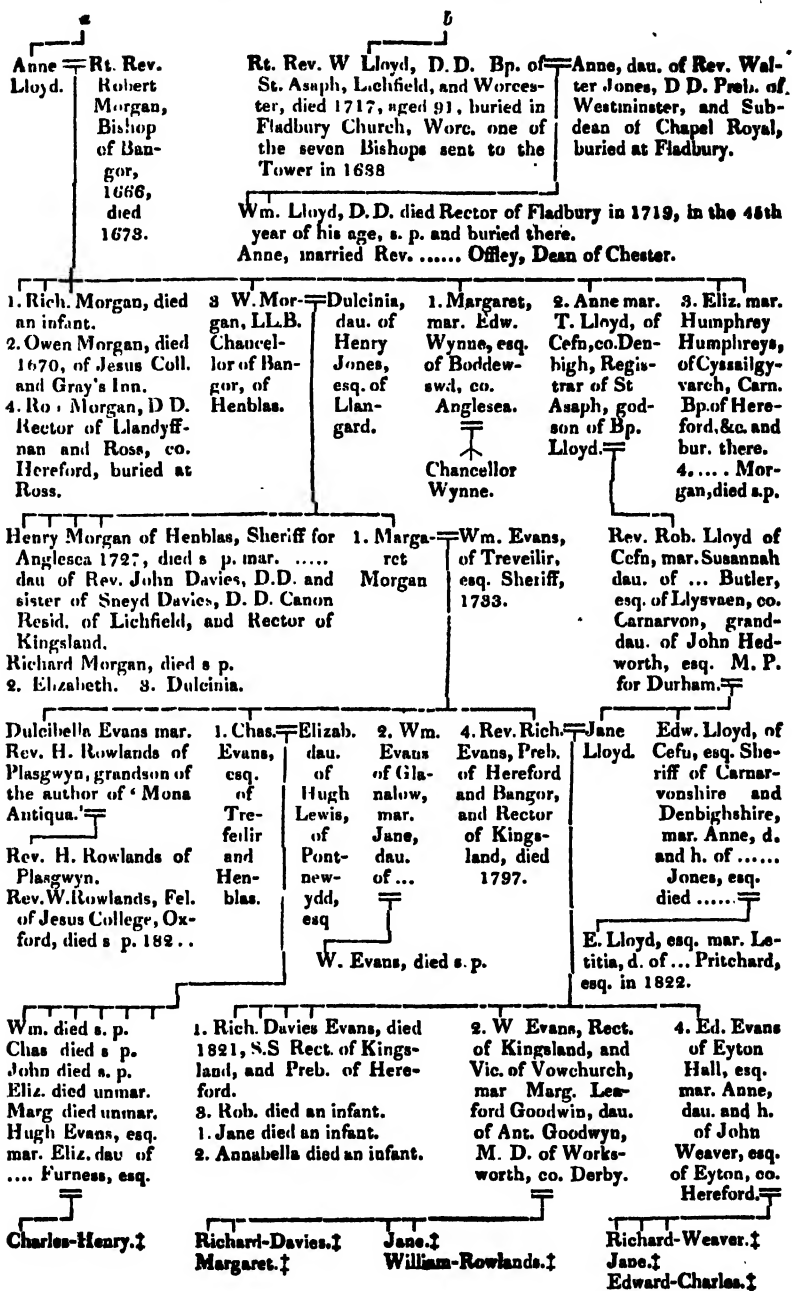 a
b
Anne
Lloyd.
Rt. Rev.
Robert
Morgan,
Bishop
of Ban-
gor,
1666,
died
1673.
Rt. Rev. W Lloyd, D.D. Bp. of
St. Asaph, Lichfield, and Worces-
ter, died 1717, aged 91, buried in
Fladbury Church, Worc. one of
the seven Bishops sent to the
Tower in 1688
Anne, dau. of Rev. Wal-
ter Jones, D D. Preb. of
Westminster, and Sub-
dean of Chapel Royal,
buried at Fladbury.
Wm. Lloyd, D.D. died Rector of Fladbury in 1719, in the 45th
year of his age, s. p. and buried there.
Anne, married Rev. ...... Offley, Dean of Chester.
1. Rich. Morgan, died
an infant.
2. Owen Morgan, died
1670, of Jesus Coll.
and Gray's Inn.
4. Ro Morgan, D D.
Rector of Llandyff-
nan and Ross, co.
Hereford, buried at
Ross.
3 W. Mor-
gan, LL.B.
Chancel-
lor of Ban-
gor, of
Henblas.
Dulcinia,
dau. of
Henry
Jones,
esq. of
Llan-
gard.
1. Margaret,
mar. Edw.
Wynne, esq.
of Boddew-
swd, co.
Anglesea.
Chancellor
Wynne.
2. Anne mar.
T. Lloyd, of
Cefn, co. Den-
bigh, Regis-
trar of St
Asaph, god-
son of Bp.
Lloyd.
3. Eliz. mar.
Humphrey
Humphreys,
of Cyssailgy-
varch, Carn.
Bp. of Here-
ford, &c. and
bur. there.
4. .... Mor-
gan, died s.p.
Henry Morgan of Henblas, Sheriff for
Anglesca 1727, died s p. mar. .....
dau of Rev. John Davies, D.D. and
sister of Sneyd Davies, D. D. Canon
Resid. of Lichfield, and Rector of
Kingsland.
Richard Morgan, died s p.
2. Elizabeth. 3. Dulcinia.
1. Marga-
ret
Morgan
Wm. Evans,
of Treveilir,
esq. Sheriff,
1733.
Rev. Rob. Lloyd of
Cefn, mar. Susannah
dau. of ... Butler,
esq. of Llysvaen, co.
Carnarvon, grand-
dau. of John Hed-
worth, esq. M. P.
for Durham.
Dulcibella Evans mar.
Rev. H. Rowlands of
Plasgwyn, grandson of
the author of ‘ Mona
Antiqua.'
Rev. H. Rowlands of
Plasgwyn.
Rev. W. Rowlands, Fel.
of Jesus College, Ox-
ford, died s p. 182 . .
1. Chas.
Evans,
esq.
of
Tre-
feilir
and
Hen-
blas.
Elizab.
dau.
of
Hugh
Lewis,
of
Pont-
new-
ydd,
esq
2. Wm.
Evans
of Gla-
nalow,
mar.
Jane,
dau.
of ...
W. Evans, died s. p.
4. Rev. Rich.
Evans, Preb.
of Hereford
and Bangor,
and Rector
of Kings-
land, died
1797.
Jane
Lloyd.
Edw. Lloyd, of
Cefu, esq. She-
riff of Carnar-
vonshire and
Denbighshire,
mar. Anne, d.
and h. of ......
Jones, esq.
died ......
E. Lloyd, esq. mar. Le-
titia, d. of ... Pritchard,
esq. in 1822.
Wm. died s. p.
Chas died s p.
John died s. p.
Eliz. died unmar.
Marg died unmar.
Hugh Evans, esq.
mar. Eliz. dau of
.... Furness, esq.
Charles-Henry.‡
1. Rich. Davies Evans, died
1821, S.S Rect. of Kings-
land, and Preb. of Here-
ford.
3. Rob. died an infant.
1. Jane died an infant.
2. Annabella died an infant.
2. W Evans, Rect.
of Kingsland, and
Vic. of Vowchurch,
mar Marg. Lea-
ford Goodwin, dau.
of Ant. Goodwyn,
M. D. of Works-
worth, co. Derby.
Richard-Davies.‡
Margaret.‡
Jane.‡
William-Rowlands.‡
4. Ed. Evans
of Eyton
Hall, esq.
mar. Anne,
dau. and h.
of John
Weaver, esq.
of Eyton, co.
Hereford.
Richard-Weaver.‡
Jane.‡
Edward-Charles.‡